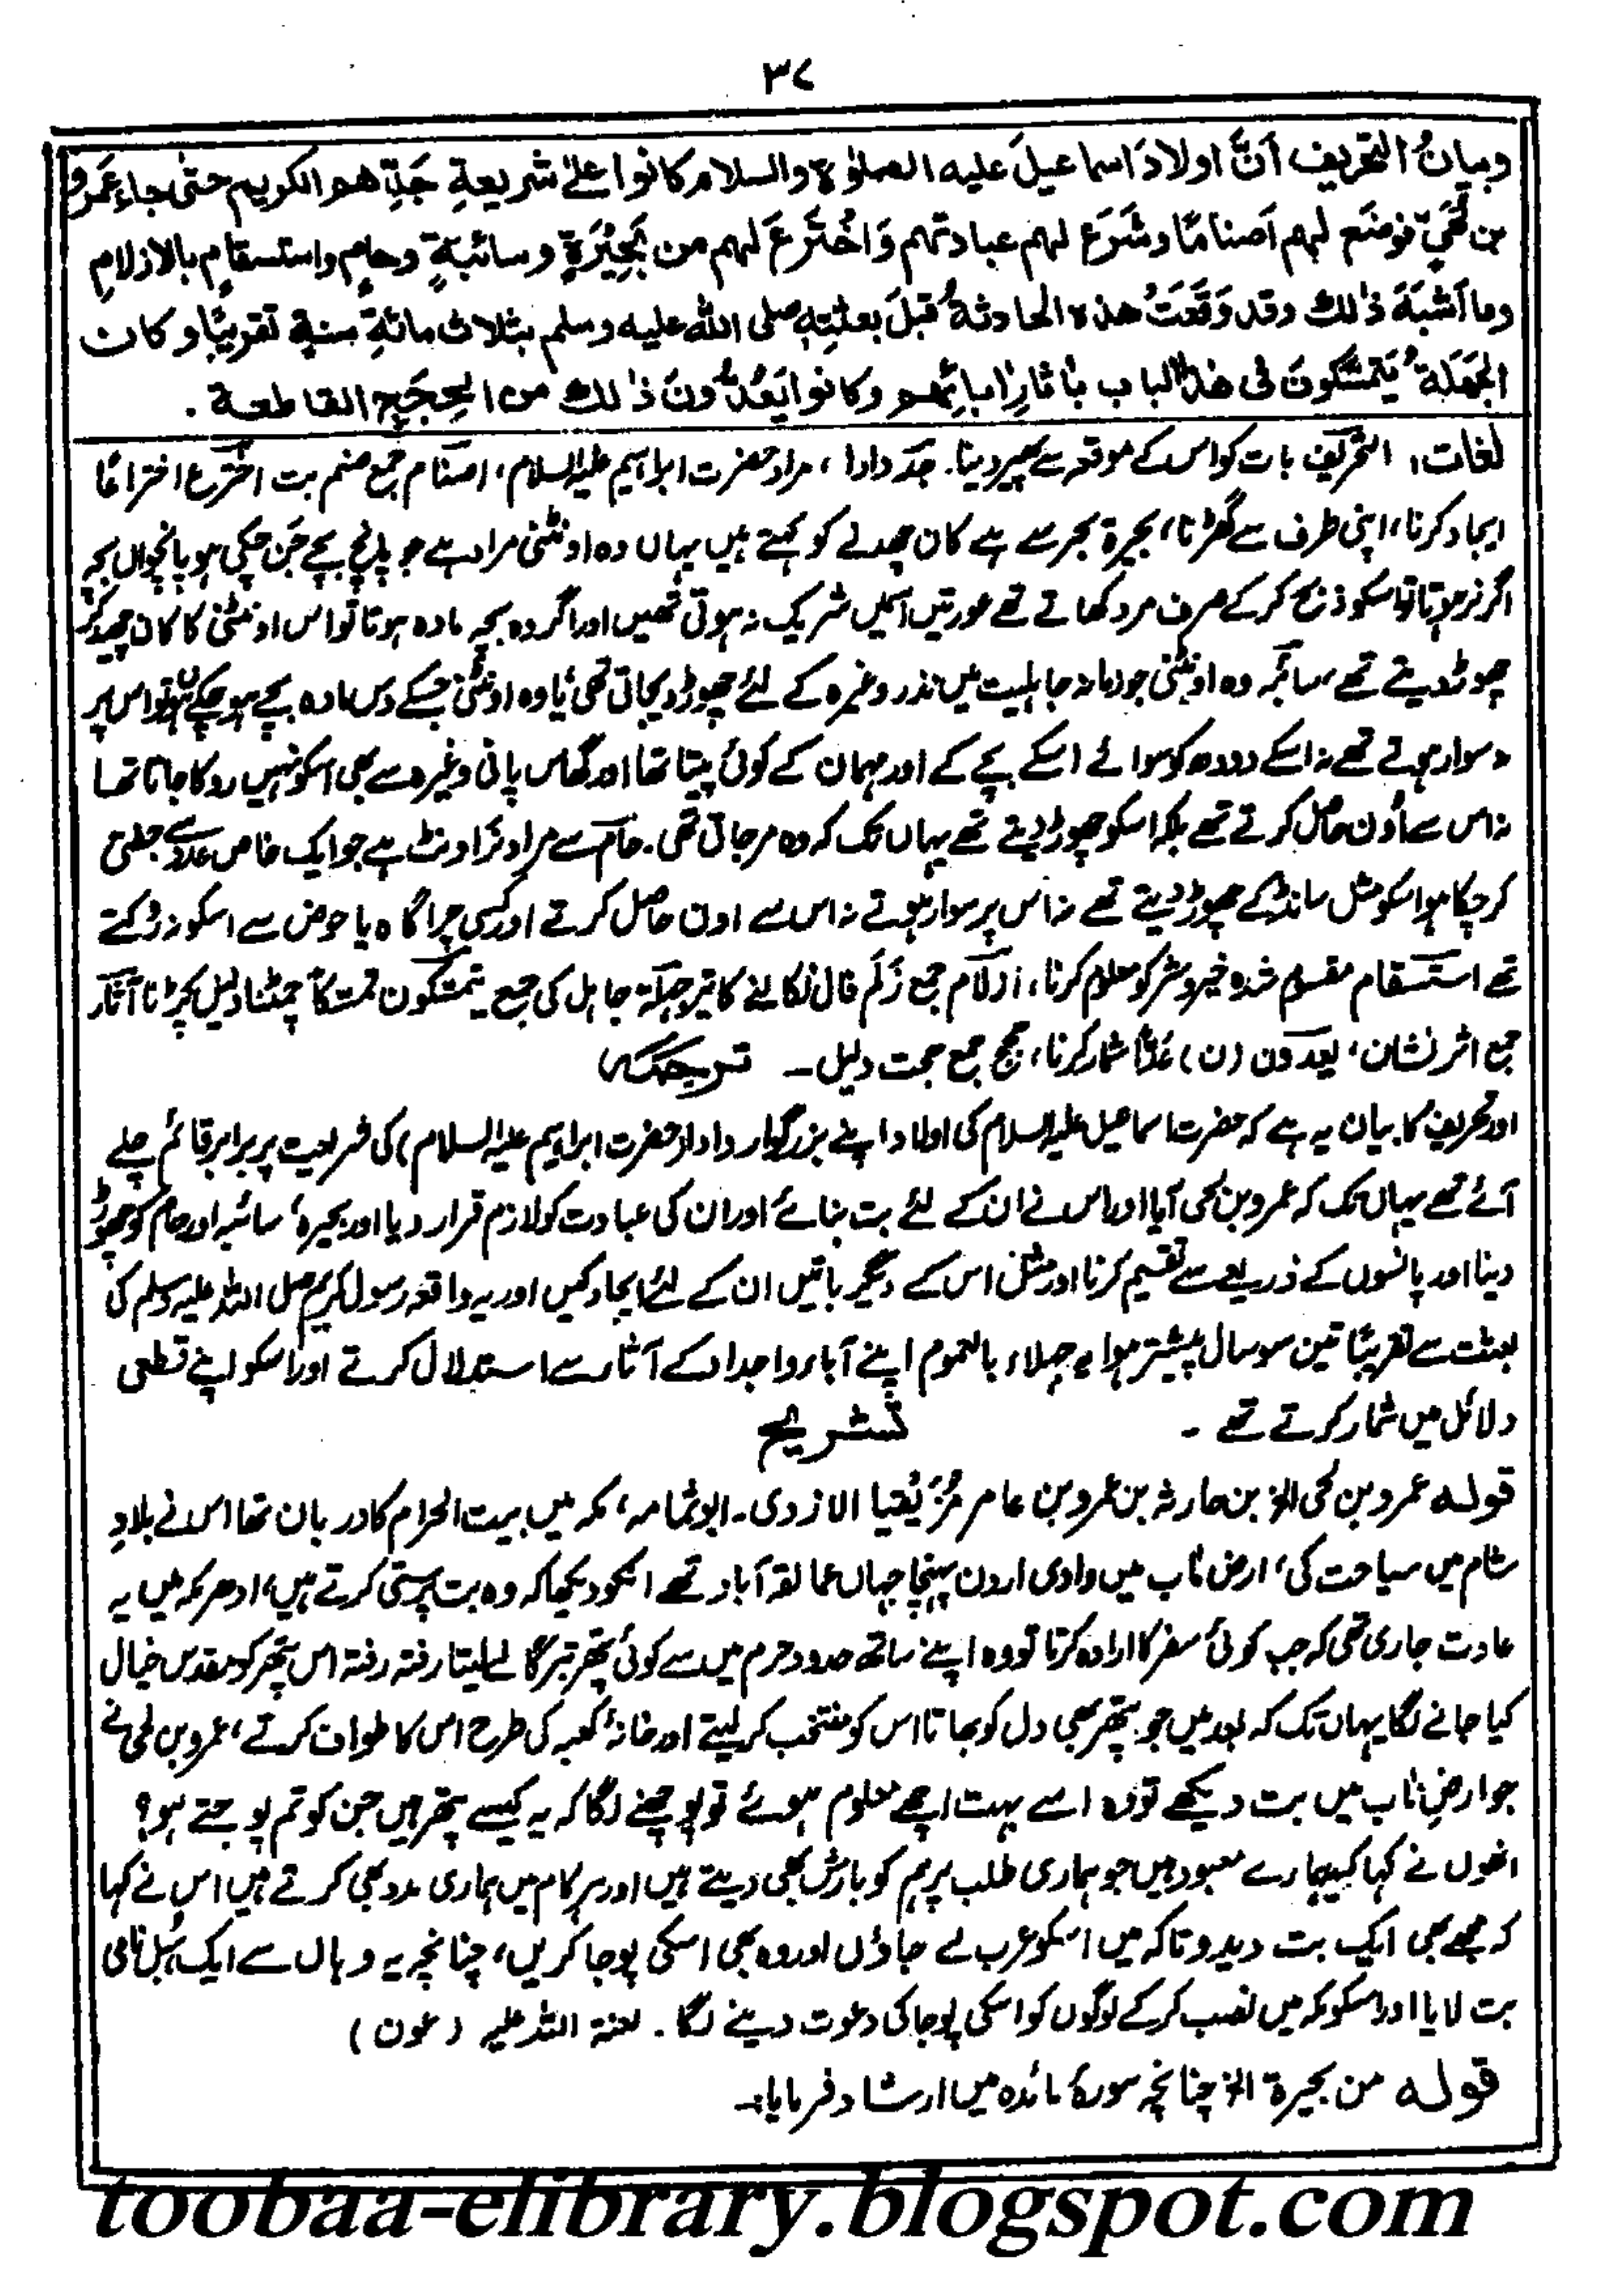 ۳۷
وبیانُ التحریف اَنَّ اولادَ اسماعیلَ علیه الصلوٰة والسلام کانوا علےٰ شریعةِ جَدِّهم الکریم حتیٰ جاء عَمرو
بن لُحَیّ فوضَع لهم اَصنامًا وشَرَع لهم عبادتهم وَاخْتَرَعَ لهم من بَحِیْرَةٍ و سائبةٍ وحامٍ واستسقامٍ بالازلامِ
وما اَشبَهَ ذٰلك وقد وَقَعَتْ هذه الحادثةُ قبلَ بعثتِهٖ صلی الله علیه وسلم بثلاث مائةِ سنةٍ تقریبًا و کان
الجَهَلَةُ یَتَمَسَّکونَ فی هٰذا الباب بآثارِ اٰبائهم وکانوا یَعُدُّونَ ذٰلك من الحِجَجِ القاطعة ۔
لغات؛ التحریف بات کو اس کے موقعہ سے پھیر دینا۔ جد دادا، مراد حضرت ابراہیم علیہ السلام، اصنام جمع صنم بت اخترع اختراعًا
ایجاد کرنا، اپنی طرف سے گھڑنا، بحیرة بحر سے ہے کان چھدنے کو کہتے ہیں یہاں وہ اونٹنی مراد ہے جو پانچ بچے جَن چکی ہو پانچواں بچہ
اگر نر ہوتا تو اسکو ذبح کرکے صرف مرد کھاتے تھے عورتیں اسمیں شریک نہ ہوتی تھیں اور اگر وہ بچہ مادہ ہوتا تو اس اونٹنی کا کان چھید کر
چھوڑ دیتے تھے، سائبہ وہ اونٹنی جو زمانہ جاہلیت میں نذر وغیرہ کے لئے چھوڑ دیجاتی تھی یا وہ اونٹنی جسکے دس مادہ بچے ہو چکے ہوں تو اس پر
نہ سوار ہوتے تھے نہ اسکے دودھ کو سوائے اسکے بچے کے اور مہمان کے کوئی پیتا تھا اور گھاس پانی وغیرہ سے بھی اسکو نہیں روکا جاتا تھا
نہ اس سے اُون حاصل کرتے تھے بلکہ اسکو چھوڑ دیتے تھے یہاں تک کہ وہ مر جاتی تھی۔ حام سے مراد نر اونٹ ہے جو ایک خاص عدد سے جفتی
کر چکا ہو اسکو مثل سانڈ کے چھوڑ دیتے تھے نہ اس پر سوار ہوتے نہ اس سے اون حاصل کرتے اور کسی چراگاہ یا حوض سے اسکو نہ روکتے
تھے استسقام مقسوم شدہ خیر و شر کو معلوم کرنا، ازلام جمع زَلَم فال نکالنے کا تیر جہلہ جاہل کی جمع یتمسکون تمسکاً چمٹنا دلیل پکڑنا آثار
جمع اثر نشان، یعدون (ن) عَدًّا شمار کرنا، حجج جمع حجت دلیل۔ ترجمہ
اور تحریف کا بیان یہ ہے کہ حضرت اسماعیل علیہ السلام کی اولاد اپنے بزرگوار دادا (حضرت ابراہیم علیہ السلام) کی شریعت پر برابر قائم چلے
آئے تھے یہاں تک کہ عمرو بن لحی آیا اور اس نے ان کے لئے بت بنائے اور ان کی عبادت کو لازم قرار دیا اور بحیرہ، سائبہ اور حام کو چھوڑ
دینا اور پانسوں کے ذریعے سے تقسیم کرنا اور مثل اس کے دیگر باتیں ان کے لئے ایجاد کیں اور یہ واقعہ رسول کریم صلی اللہ علیہ وسلم کی
بعثت سے تقریبًا تین سو سال پیشتر ہوا یہ جہلاء بالعموم اپنے آباء و اجداد کے آثار سے استدلال کرتے اور اسکو اپنے قطعی
دلائل میں شمار کرتے تھے ۔ تشریح
قولہ عمرو بن لحی الخ بن حارثہ بن عمرو بن عامر مُزَیْقیا الازدی۔ ابو ثمامہ، مکہ میں بیت الحرام کا دربان تھا اس نے بلادِ
شام میں سیاحت کی، ارض مآب میں وادی اردن پہنچا جہاں عمالقہ آباد تھے انکو دیکھا کہ وہ بت پرستی کرتے ہیں، ادھر مکہ میں یہ
عادت جاری تھی کہ جب کوئی سفر کا ارادہ کرتا تو وہ اپنے ساتھ حدود حرم میں سے کوئی پتھر تبرکاً لے لیتا رفتہ رفتہ اس پتھر کو مقدس خیال
کیا جانے لگا یہاں تک کہ بعد میں جو پتھر بھی دل کو بھاتا اس کو منتخب کر لیتے اور خانۂ کعبہ کی طرح اس کا طواف کرتے، عمرو بن لحی نے
جو ارضِ مآب میں بت دیکھے تو وہ اسے بہت اچھے معلوم ہوئے تو پوچھنے لگا کہ یہ کیسے پتھر ہیں جن کو تم پوجتے ہو؟
انھوں نے کہا کہ یہ ہمارے معبود ہیں جو ہماری طلب پر ہم کو بارش بھی دیتے ہیں اور ہر کام میں ہماری مدد بھی کرتے ہیں اس نے کہا
کہ مجھے بھی ایک بت دیدو تاکہ میں اسکو عرب لے جاؤں اور وہ بھی اسکی پوجا کریں، چنانچہ یہ وہاں سے ایک ہُبل نامی
بت لایا اور اسکو مکہ میں نصب کرکے لوگوں کو اسکی پوجا کی دعوت دینے لگا۔ لعنۃ اللہ علیہ (عون)
قولہ من بحیرة الخ چنانچہ سورۂ مائدہ میں ارشاد فرمایا:۔
toobaa-elibrary.blogspot.com